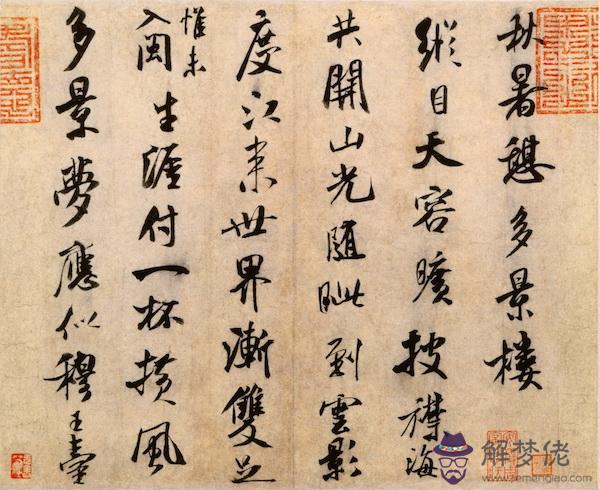 秋暑憩多景樓
縱目天容曠披襟海
共開山光隨眦到雲影
度江來世界漸雙足
惟未
入閩生涯付一杯橫風
多景夢應似穆王臺
解梦佬